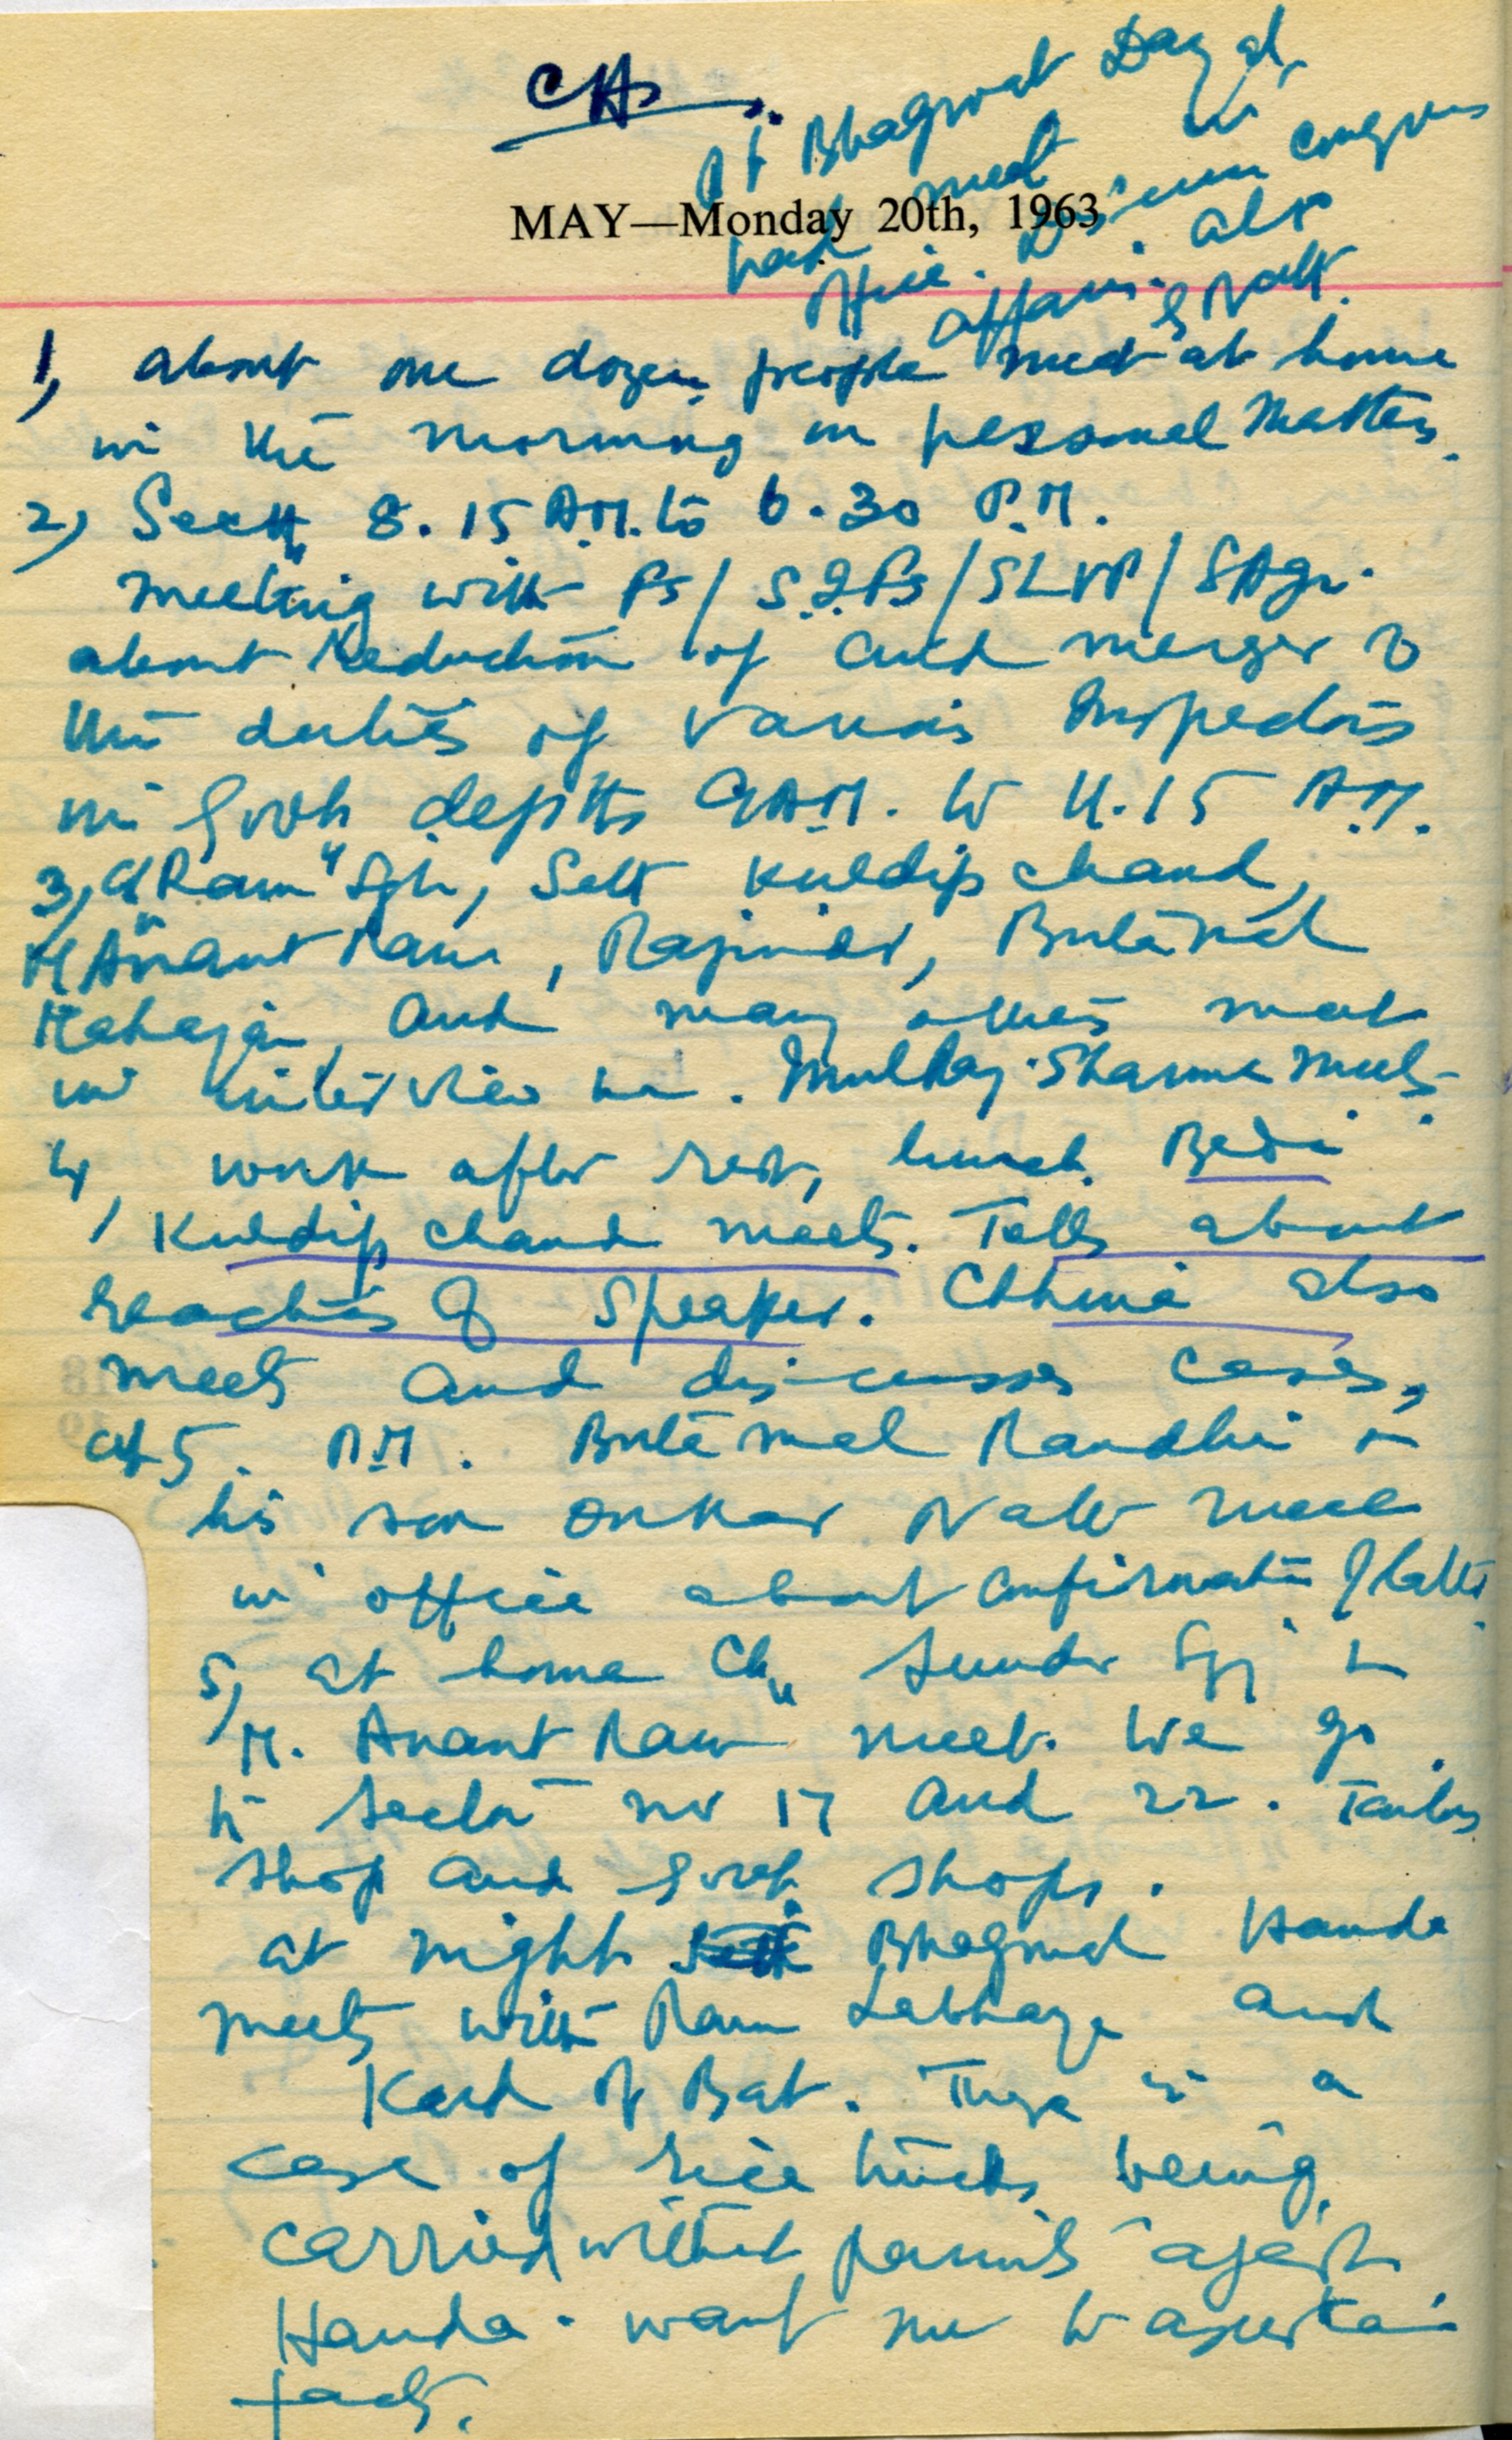 CH
Pt Bhagwat Dayal
had met in
office. Discuss congress
affairs. also
MAY—Monday 20th, 1963
1, about one dozen people met at home
in the morning on personal matters.
2, Sectt 8.15 A.M. to 6.30 P.M.
meeting with FS/ S.I.Ps/SLVP/SAgr.
about reduction of and merger of
the duties of various Inspectors
in Govt deptts 9 A.M. to 11.15 A.M.
3, Ch Ram Sgh, Seth Kuldip Chand,
M Anant Ram, Rajinder,
Mahajan and many others met
in interview. Sharma meets.
4, work after rest, lunch. Bedi
Kuldip Chand meets. Talks about
reactions of Speaker. also
meets and discusses cases,
at 5. P.M. Buta mal Randhir
his son Onkar Nath meet
in office about confirmation of latter
5, at home Ch Sunder Sgh
M. Anant Ram meet. We go
to Sector no 17 and 22. Tailors
shop and Govt shops.
at night Bhagwat Handa
meets with Ram Labhaya and
of Bat. There is a
case of rice trucks being
carried without permits against
Handa. want me to ascertain
facts.